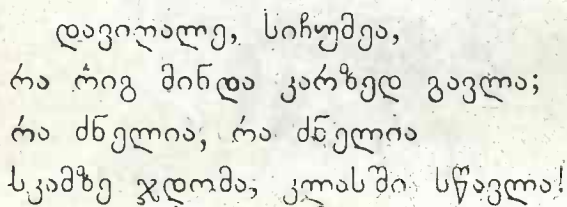 დავიღალე, სიჩუმეა,
რა რიგ მინდა კარზედ გავლა;
რა ძნელია, რა ძნელია
სკამზე ჯდომა, კლასში სწავლა!